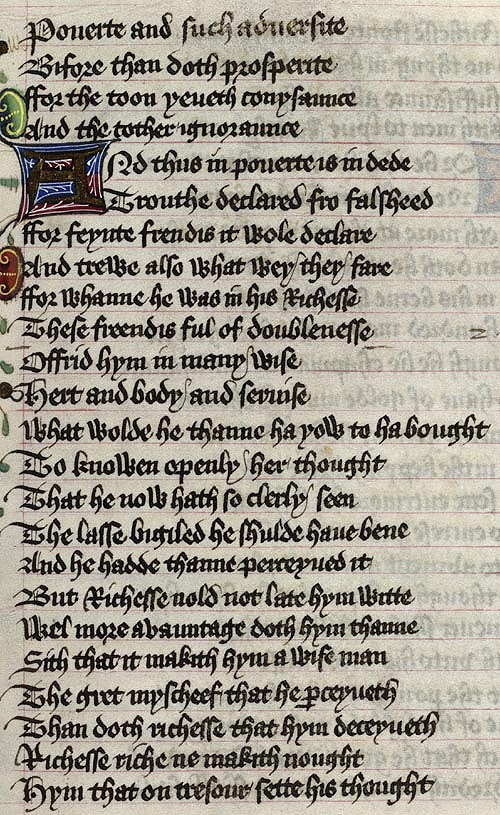 Pouerte and such aduersite
Bifore than doth prosperite
ffor the toon yeueth conysaunce
And the tother ignoraunce
And thus in pouerte is in dede
Trouthe declared fro falsheed
ffor feynte frendis it wole declare
And trewe also what wey they fare
ffor whanne he was in his Richesse
These freendis ful of doublenesse
Offrid hym in many wise
Hert and body and seruise
What wolde he thanne ha yow to ha bought
To knowen openly her thought
That he now hath so clerly seen
The lasse bigiled he shulde haue bene
And he hadde thanne perceyued it
But Richesse nold not late hym witte
Wel more avauntage doth hym thanne
Sith that it makith hym a wise man
The gret myscheef that he pceyueth
Than doth richesse that hym deceyueth
Richesse riche ne makith nought
Hym that on tresour sette his thought